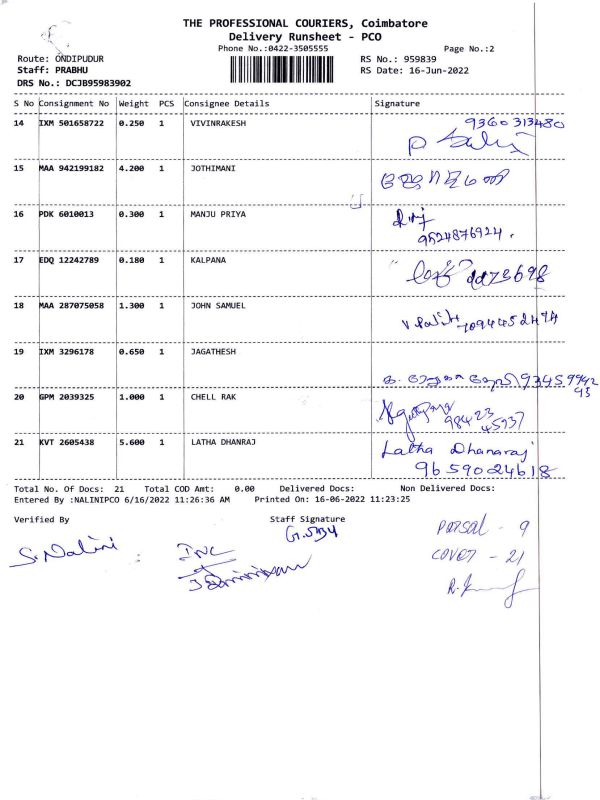 THE PROFESSIONAL COURIERS, Coimbatore
Delivery Runsheet - PCO
Phone No.:0422-3505555 Page No.:2
Route: ONDIPUDUR RS No.: 959839
Staff: PRABHU RS Date: 16-Jun-2022
DRS No.: DCJB95983902
S No Consignment No Weight PCS Consignee Details Signature
14 IXM 501658722 0.250 1 VIVINRAKESH 9360313480
15 MAA 942199182 4.200 1 JOTHIMANI
16 PDK 6010013 0.300 1 MANJU PRIYA
9524876924.
17 EDQ 12242789 0.180 1 KALPANA
18 MAA 287075058 1.300 1 JOHN SAMUEL
19 IXM 3296178 0.650 1 JAGATHESH
20 GPM 2039325 1.000 1 CHELL RAK
98423
21 KVT 2605438 5.600 1 LATHA DHANRAJ Latha Dhanaraj
9659024618
Total No. Of Docs: 21 Total COD Amt: 0.00 Delivered Docs: Non Delivered Docs:
Entered By :NALINIPCO 6/16/2022 11:26:36 AM Printed On: 16-06-2022 11:23:25
Verified By Staff Signature
S. Nalini
Parsal - 9
Cover - 21